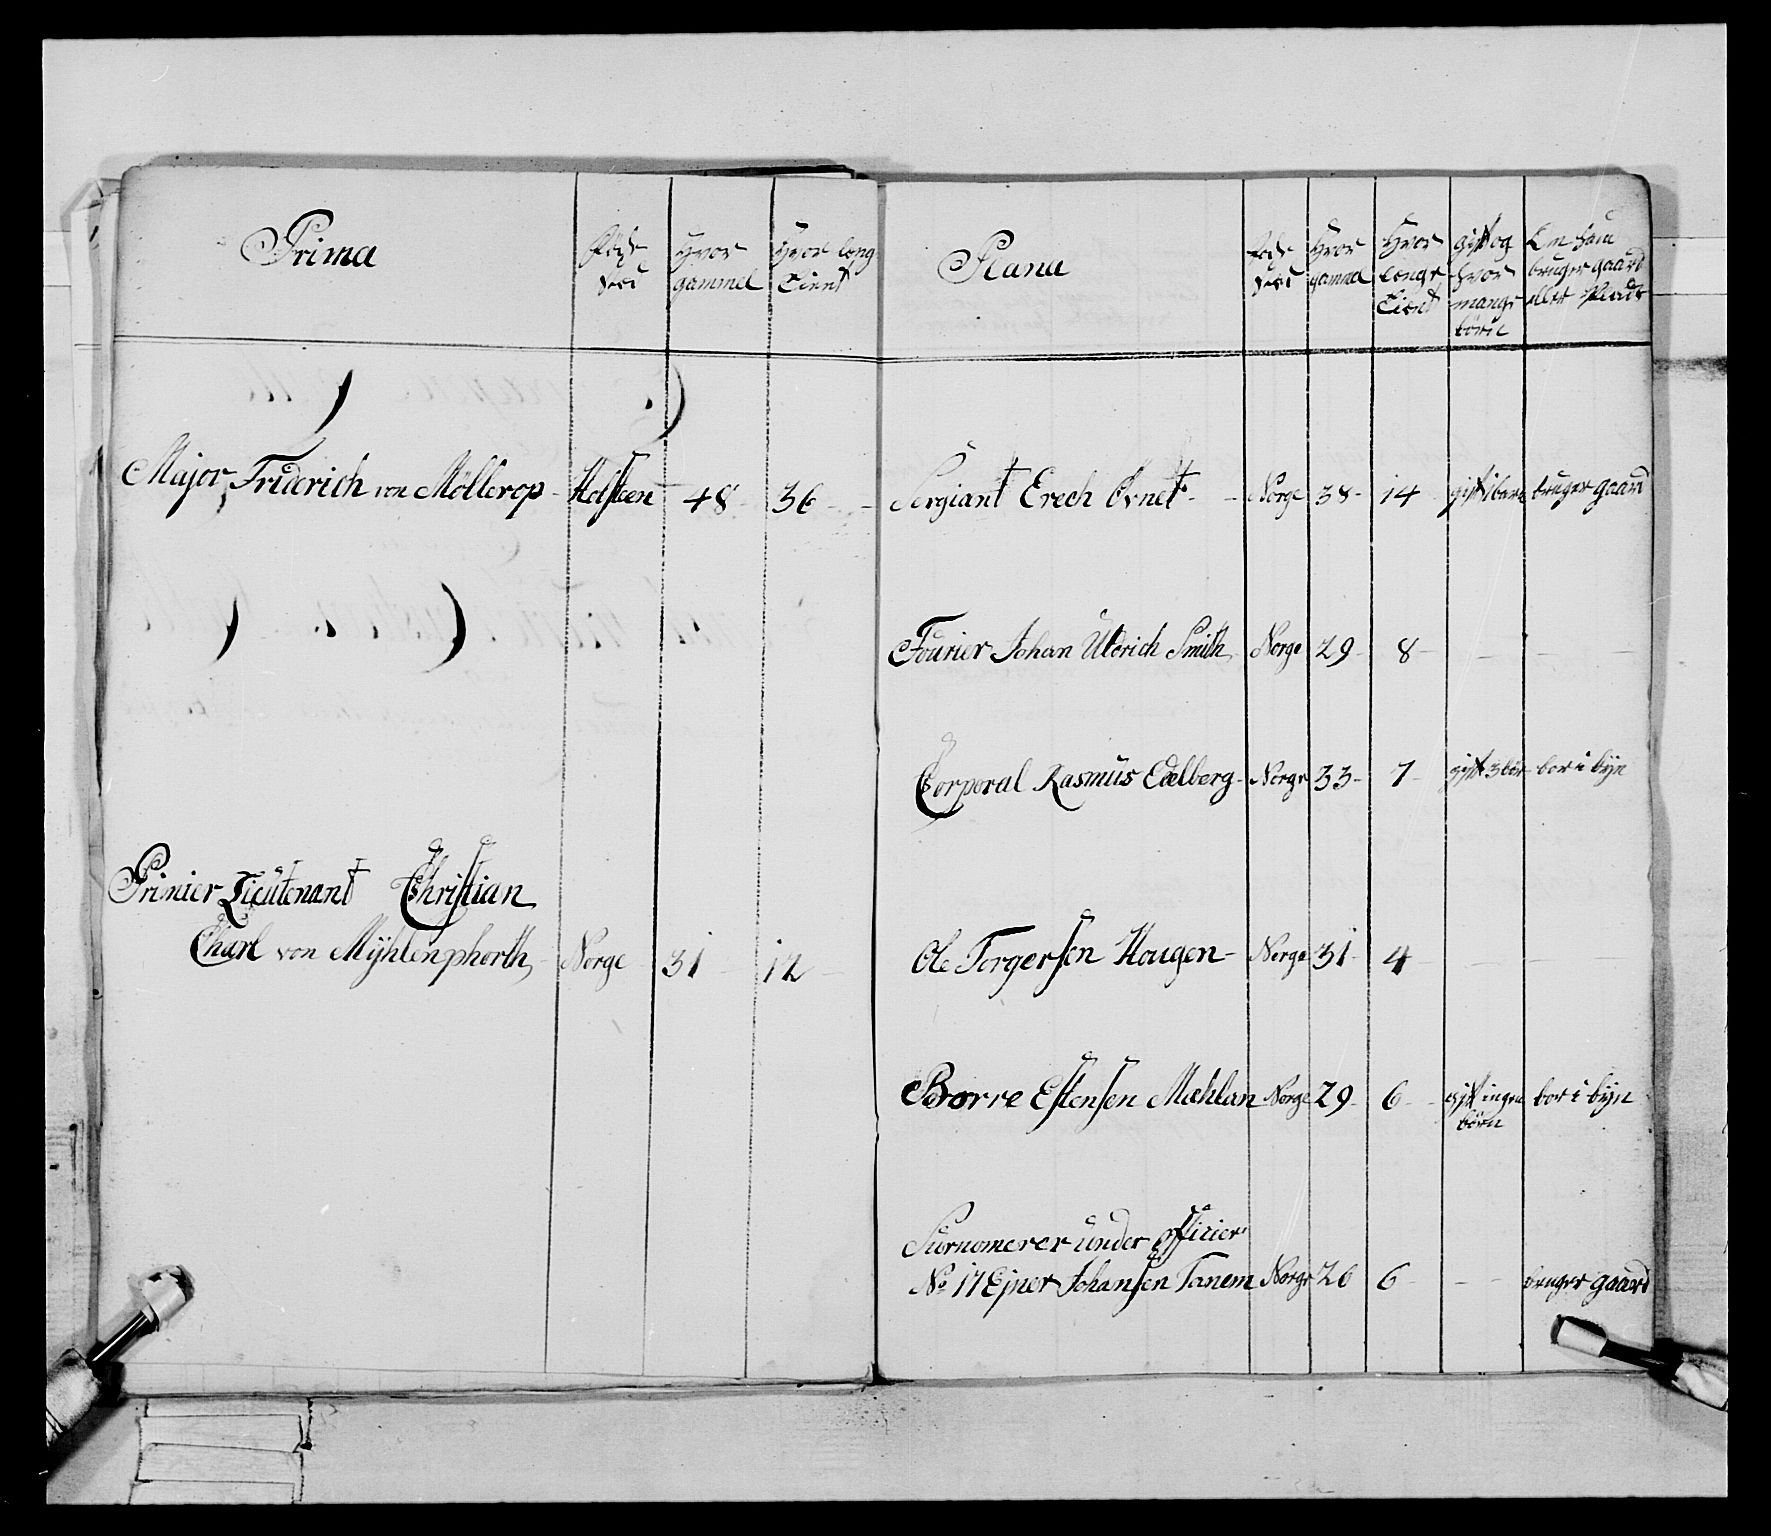 Prima
Føde Sted
Hvor gammel
Hvor leng Tient
Major Friderich von Möllerop - Holsteen 48 36
Primier Lieutenant Christian
Charl von Mÿhlenphorth, Norge 31 12
Plana
Føde Sted
Hvor gammel
Hvor lenge Tient
gift og hvor mange börn
Em han bruger gaard eller Plads
Sergiant Erech Ovnet - Norge 38 14 gift 1 barn bruger gaard
Fourier Johan Ulderich Smith, Norge 29 8
Corporal Rasmus Edelberg - Norge 33 7 gift 3 bör bor i bÿn
Ole Torgersen Hougen - Norge 31 4
Borre Estensen Mæhlan Norge 29 6 gift ingen börn bor i bÿn
Surnomerer under officier
No 17 Ejner Johansen Tanem Norge 26 6 bruger gaard